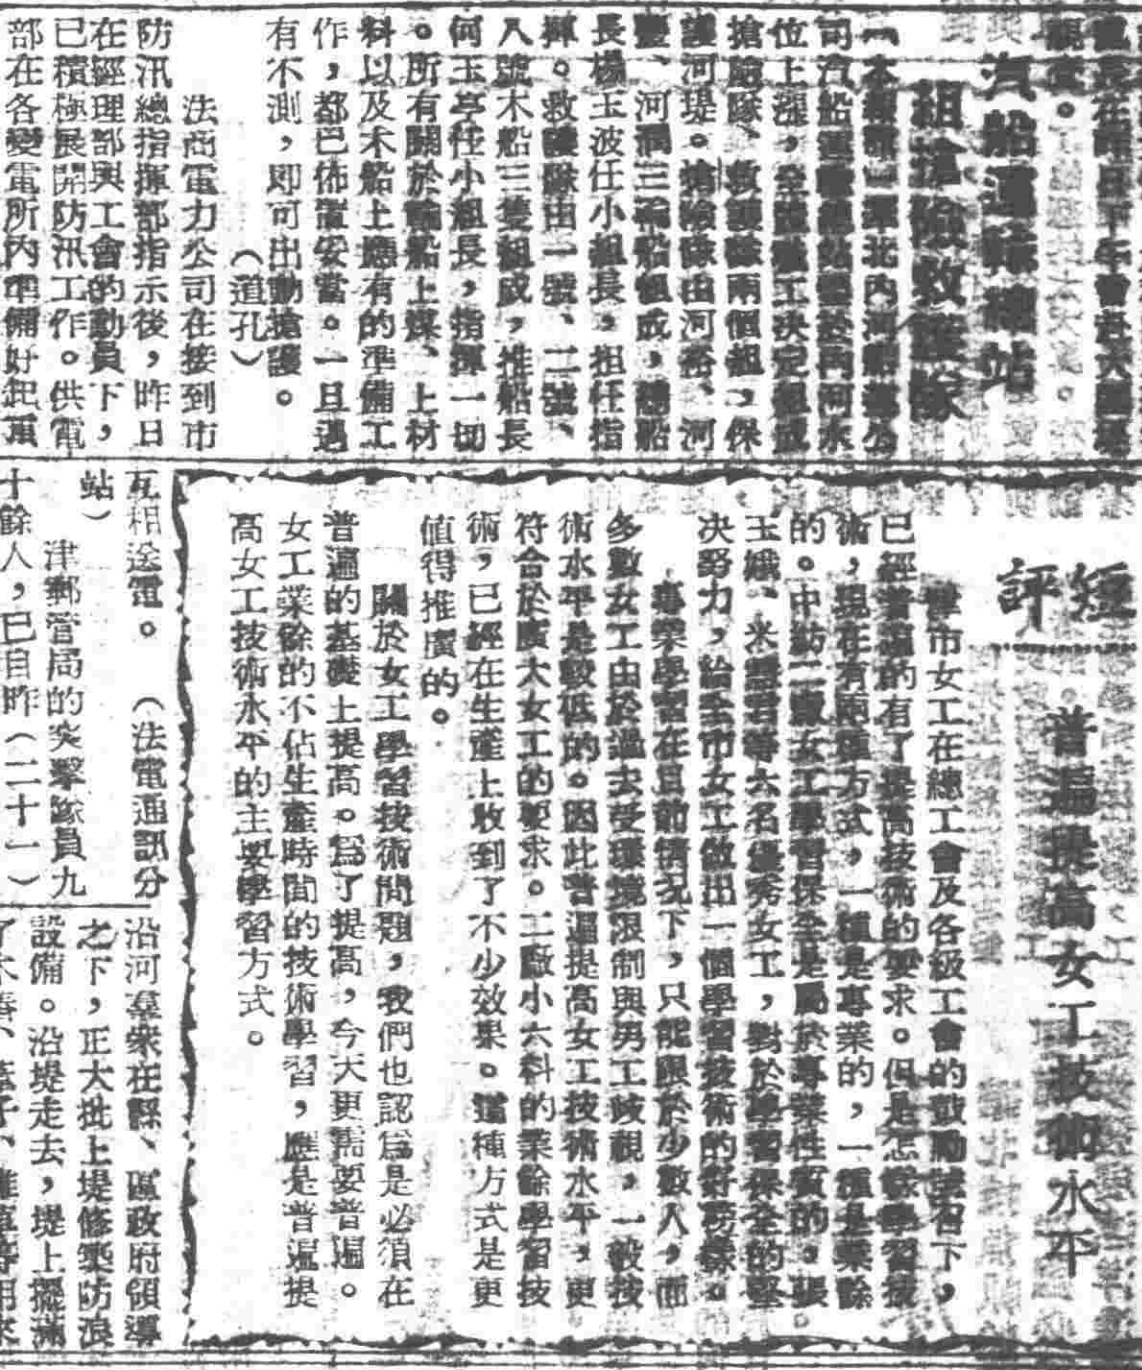 汽船運輸總站
組搶險救護隊
司汽船運輸總站鑒於內河水
位上漲，全體職工決定組成
搶險隊、救護隊兩個組，保
護河堤。搶險隊由河裕、河
長楊玉波任小組長，担任指
揮。救護隊由一號、二號、
八號木船三隻組成，推船長
何玉亭任小組長，指揮一切
。所有關於輪船上煤、上材
料以及木船上應有的準備工
作，都已佈置妥當。一旦遇
有不測，即可出動搶護。
（道孔）
法商電力公司在接到市
防汛總指揮部指示後，昨日
在經理部與工會的動員下，
已積極展開防汛工作。供電
部在各變電所內準備好起重
短評
普遍提高女工技術水平
津市女工在總工會及各級工會的鼓勵號召下，
已經普遍的有了提高技術的要求。但是怎樣學習技
術，現在有兩種方式，一種是專業的，一種是業餘
的。中紡二廠女工學習保全是屬於專業性質的，張
玉娥、米                等六名優秀女工，對於學習保全的堅
決努力，給全市女工做出一個學習技術的好榜樣。
專業學習在目前情況下，只能限於少數人，而
多數女工由於過去受環境限制與男工歧視，一般技
術水平是較低的。因此普遍提高女工技術水平，更
符合於廣大女工的要求。二廠小六科的業餘學習技
術，已經在生產上收到了不少效果。這種方式是更
值得推廣的。
關於女工學習技術問題，我們也認爲是必須在
普遍的基礎上提高。爲了提高，今天更需要普遍。
女工業餘的不佔生產時間的技術學習，應是普遍提
高女工技術水平的主要學習方式。
互相送電。（法電通訊分
站）
津郵管局的突擊隊員九
十餘人，已自昨（二十一）
沿河羣衆在縣、區政府領導
之下，正大批上堤修築防浪
設備。沿堤走去，堤上擺滿